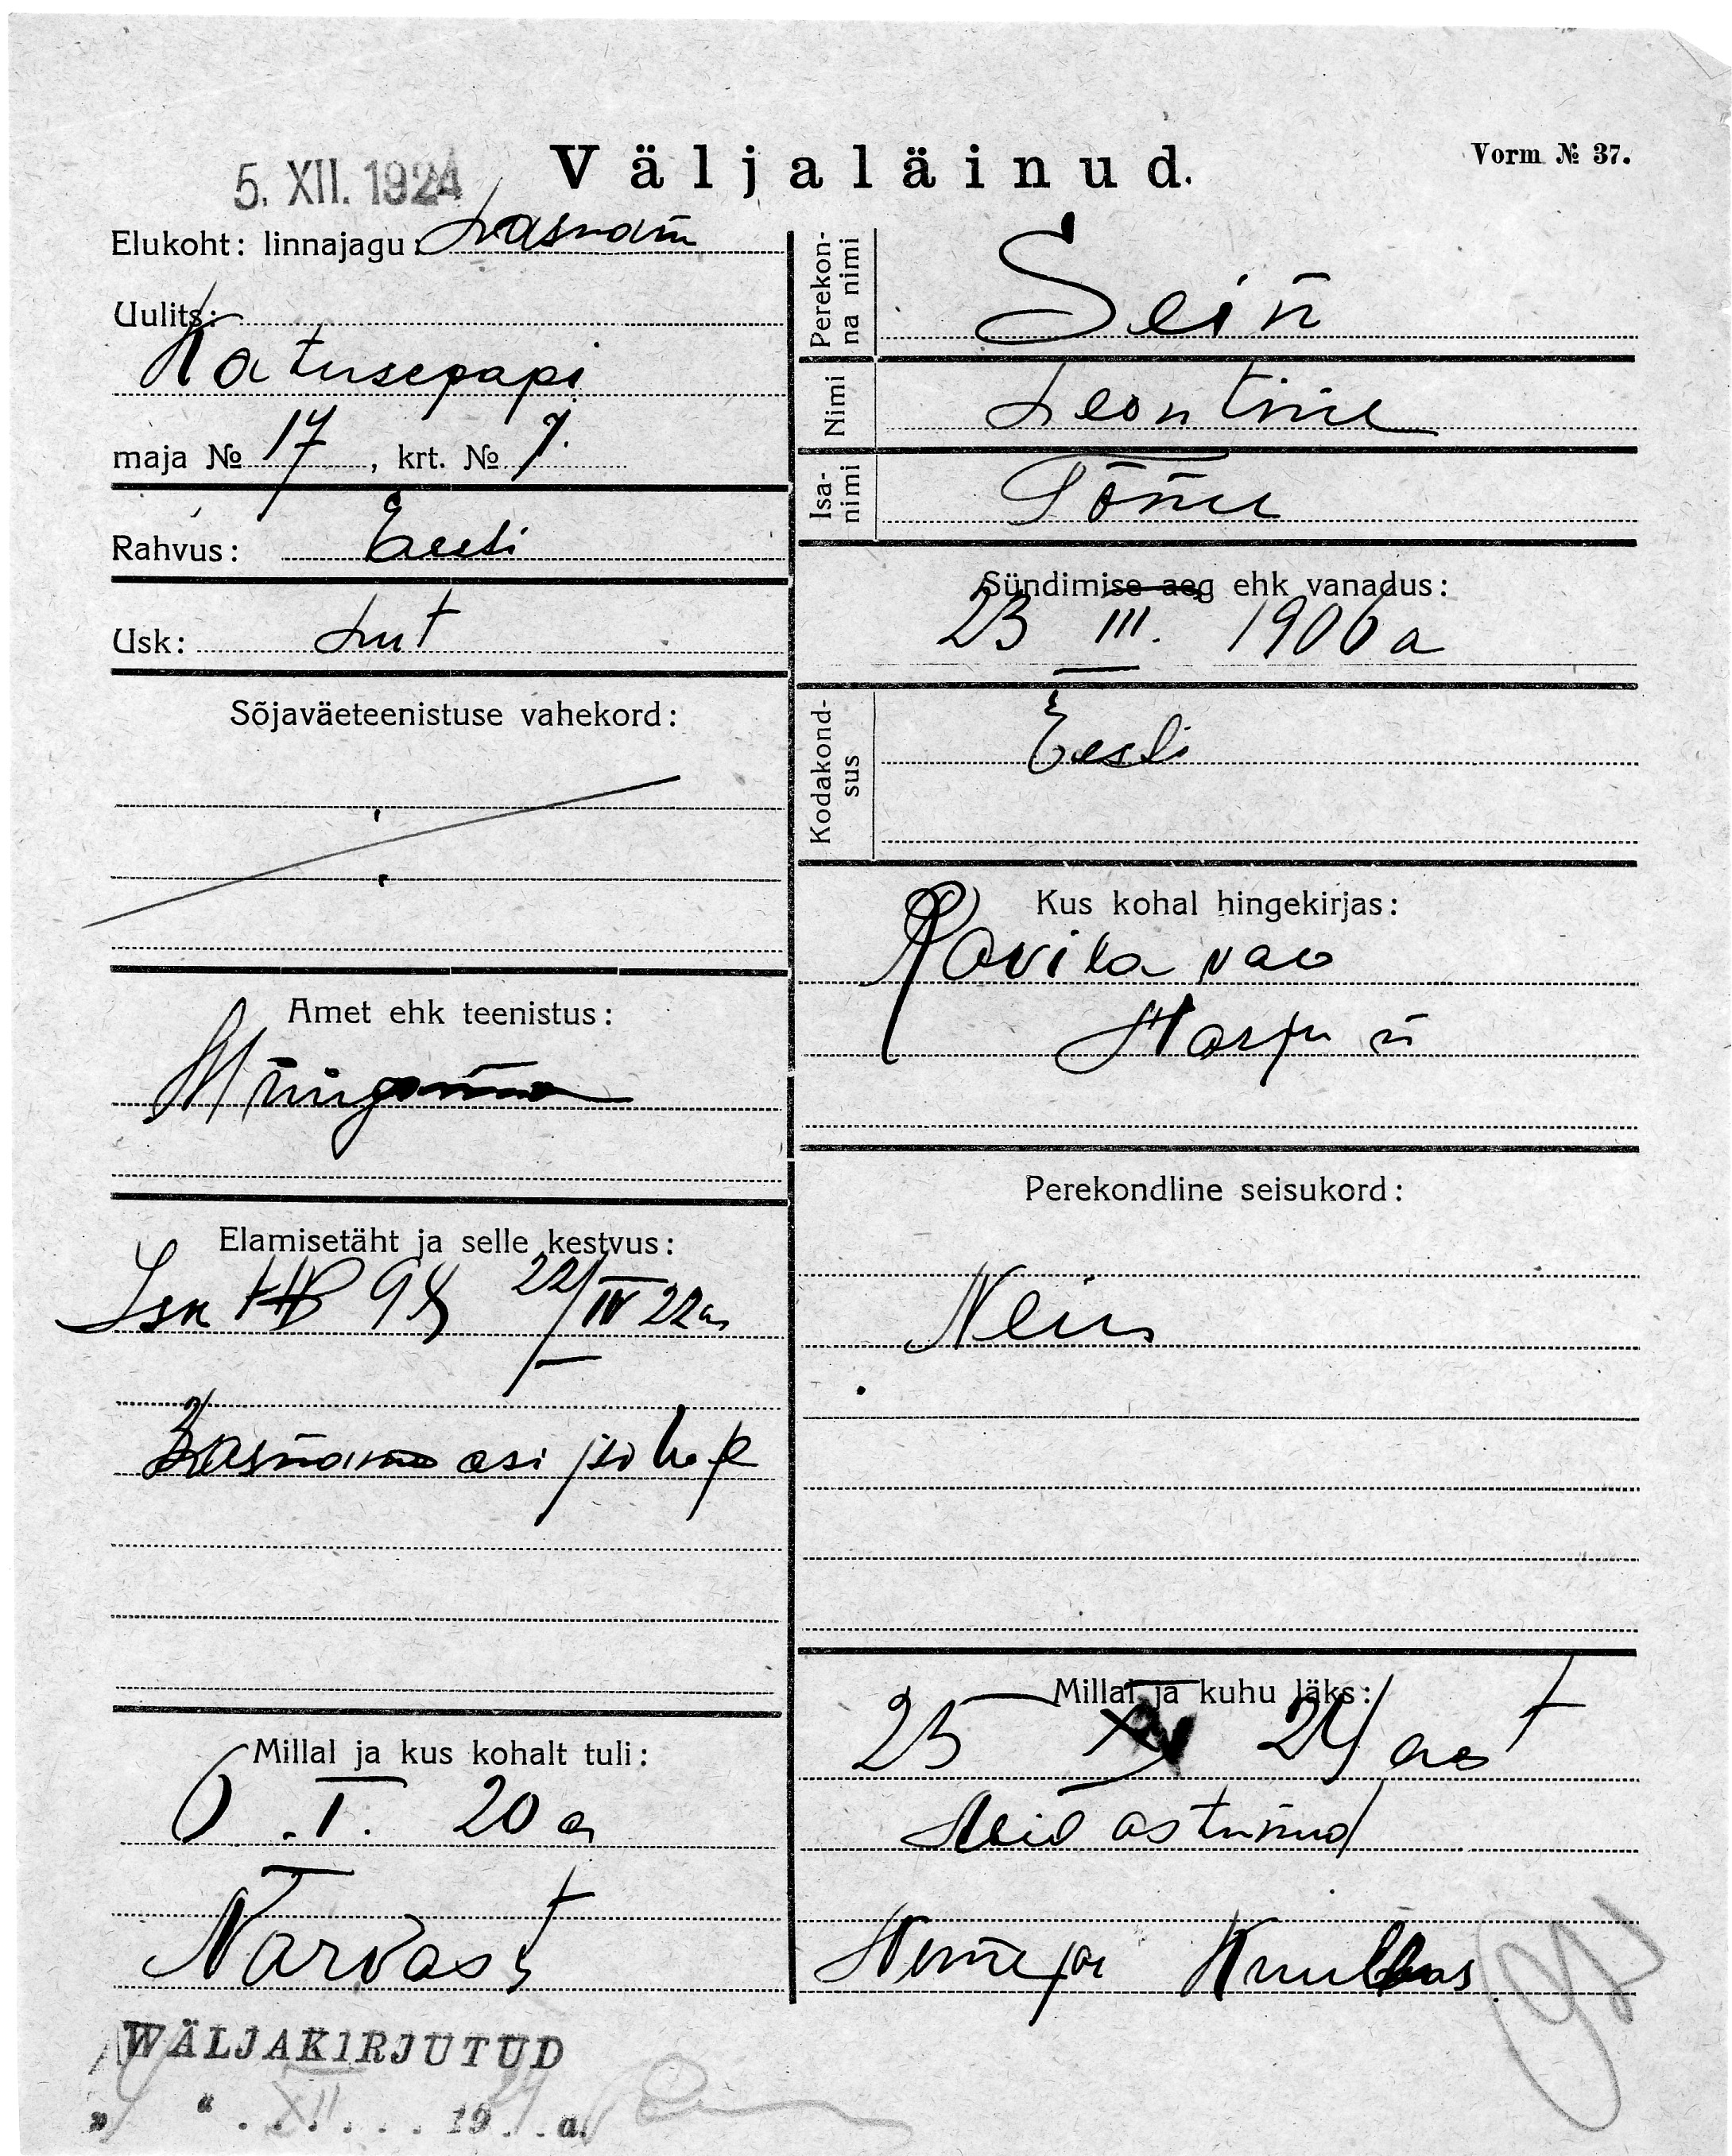 5. XII. 1924
Väljaläinud.
Vorm № 37.
Elukoht: linnajagu: Lasnam
Uulits:
Katusepapi
maja № 17, krt. № 7.
Rahvus: Eesti
Usk: Lut
Sõjaväeteenistuse vahekord:
Amet ehk teenistus:
Elamisetäht ja selle kestvus:
Isn 94 22/IV 22a
Lasnam jsk
Millal ja kus kohalt tuli:
6 .I. 20 a
Narvast
WÄLJAKIRJUTUD
" " . XII . . . 1924 . a.
Perekonna nimi
Sein
Nimi
Leontine
Isanimi
Tõnu
Sündimise aeg ehk vanadus:
23 III. 1906 a
Kodakondsus
Eesti
Kus kohal hingekirjas:
Ravila vao
Harju
Perekondline seisukord:
Neiu
Millal ja kuhu läks:
25 24 aas
astunud